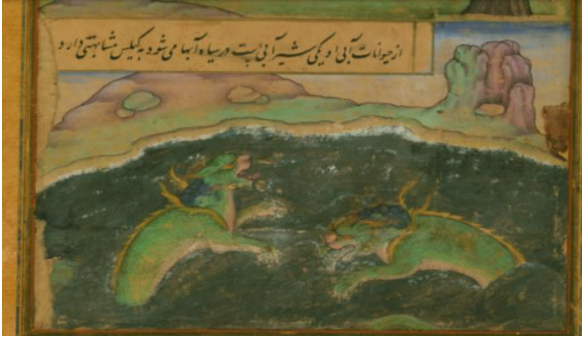 از حیوانات آبی او یکی شیر آبی است در سیاه آبها می شود به کیلس مشابهتی دارد